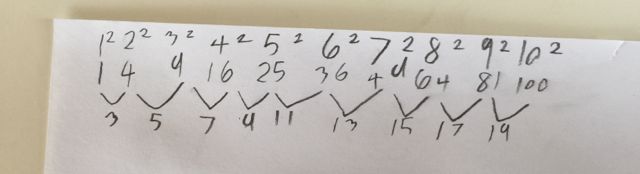 1² 2² 3² 4² 5² 6² 7² 8² 9² 10²
1 4 9 16 25 36 49 64 81 100
3 5 7 9 11 13 15 17 19